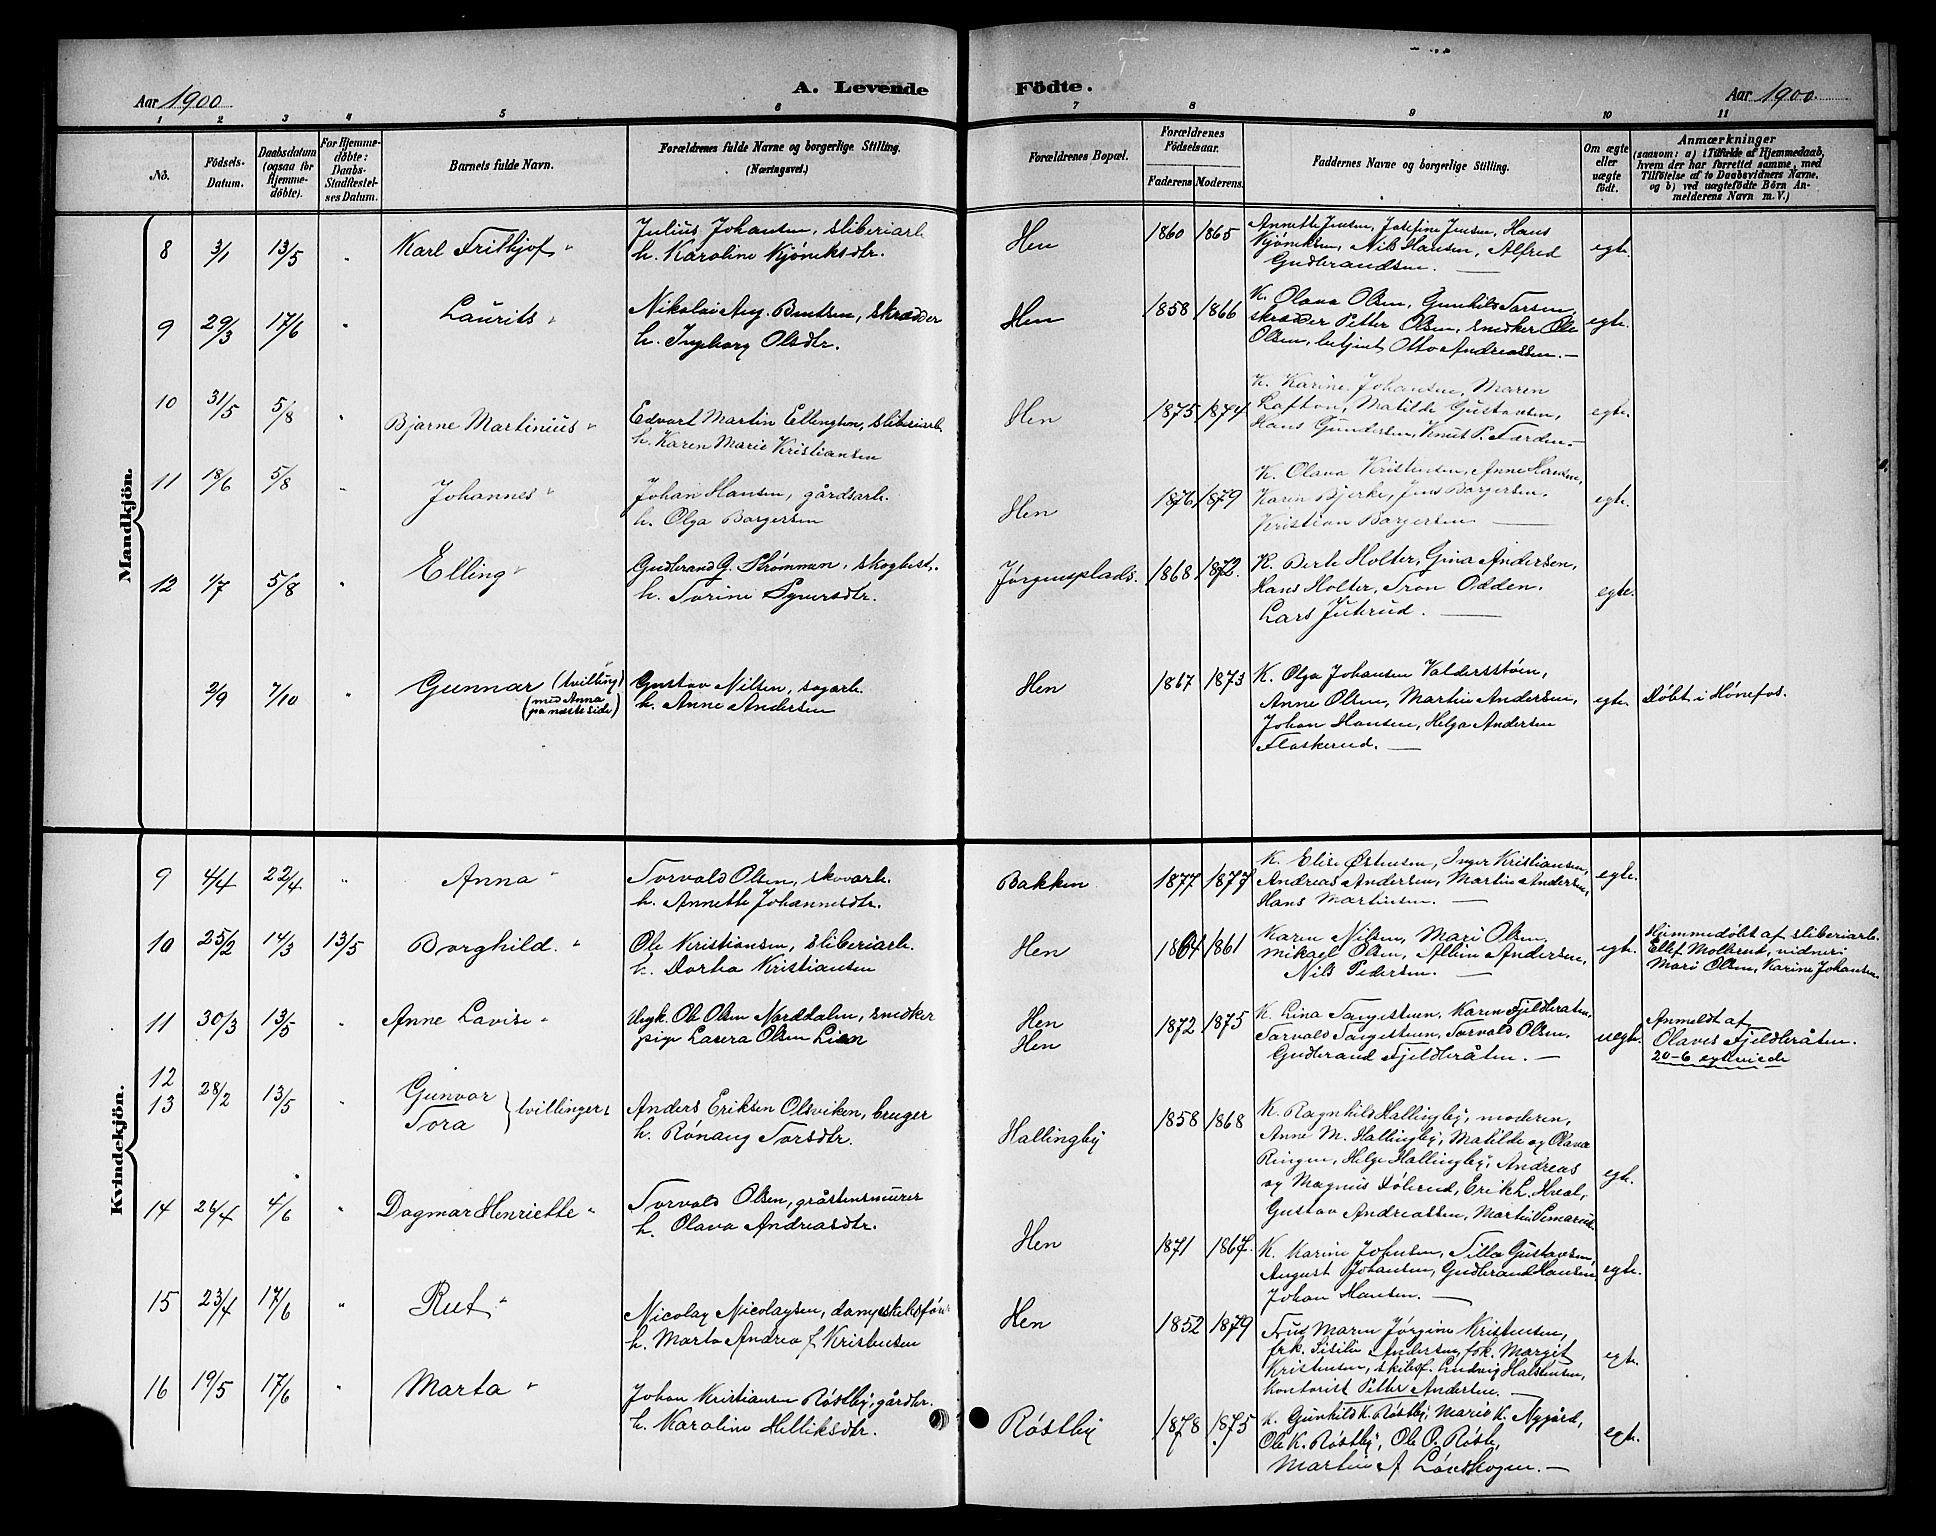 Aar 1900
A. Levende
Födte.
Aar 1900.
1 2 3 4 5 6 7 8 9 10 11
No.
Födsels-Datum.
Daabsdatum (ogsaa for Hjemme-döbte).
For Hjemme-döbte: Daabs-Stadfæstel-ses Datum.
Barnets fulde Navn.
Forældrenes fulde Navne og borgerlige Stilling.
(Næringsvei.)
Forældrenes Bopæl.
Forældrenes Födselsaar.
Faderens. Moderens.
Faddernes Navne og borgerlige Stilling.
Om ægte eller uægte födt.
Anmærkninger
(saasom: a) i Tilfælde af Hjemmedaab,
hvem der har forrettet samme, med
Tilföielse af to Daabsvidners Navne,
og b) ved uægtefödte Börn An-
melderens Navn m. V.)
Mandkjön.
8 3/1 13/5 " Karl Frithjof " Julius Johansen, sliberiarb. Hen 1860 1865 Annette Jensen, Josefine Jensen, Hans
h. Karoline Kjøniksdtr. Kjøniksen, Nils Hansen, Alfred egte.
Gudbrandsen. —
9 29/3 17/6 " Laurits " Nikolai Aug. Bentsen, skrædder Hen 1858 1866 K. Olava Olsen, Gunhild Larsen,
h. Ingeborg Olsdtr. skrædder Petter Olsen, snedker Ole egte.
Olsen, betjent Otto Andreassen. —
10 31/5 5/8 " Bjarne Martinius " Edvart Martin Ellingsen, sliberiarb. Hen 1875 1874 K. Karine Johansen, Maren
h. Karen Marie Kristiansen Lafton, Matilde Gustavsen, egte.
Hans Gundersen, Knut P. Færden. —
11 18/6 5/8 " Johannes " Johan Hansen, gårdsarb. Hen 1876 1879 K. Olava Kristensen, Anne Hansen,
h. Olga Borgersen Karen Bjerke, Jens Borgersen, egte.
Kristian Borgersen —
12 1/7 5/8 " Elling " Gudbrand G. Strømmen, skogbest. Jørgensplads. 1868 1872. K. Berte Holter, Gina Andersen,
h. Torine Syversdtr. Hans Holter, Tron Odden, egte.
Lars Juterud. —
2/9 7/10 " Gunnar (tvilling Gustav Nilsen, sagarb. Hen 1867 1873 K. Olga Johansen Valdersstøen,
(med Anna h. Anne Andersen Anne Olsen, Martin Andersen, egte Døbt i Hønefos.
på næste side) Johan Hansen, Helga Andersen
Flaskerud. —
Kvindekjön.
9 4/4 22/4 " Anna " Torvald Olsen, skovarb. Bakken 1877 1877 K. Elise Østensen, Inger Kristiansen,
h. Annette Johannesdtr. Andreas Andersen, Martin Andersen, egte.
Hans Martinsen. —
10 25/2 14/3 13/5 Borghild. " Ole Kristiansen, sliberiarb. Hen 1864 1861 Karen Nilsen, Mari Olsen, egte. Hjemmedøbt af sliberiarb.
h. Dorthea Kristiansen Mikael Olsen, Albin Andersen, Ellef Molkerud, vidner:
Nils Pedersen. — Mari Olsen, Karine Johansen
11 30/3 13/5 " Anne Lavise " Ungk. Ole Olsen Norddalen, snedker Hen 1872 1875 K. Lina Torgersen, Karen Fjeldbråten, uegte. Anmeldt af
pige Laura Olsen Lien Hen Torvald Torgersen, Torvald Olsen, Olaves Fjeldbråten.
Gudbrand Fjeldbråten. — 20-6 egteviede
12 28/2 13/5 " Gunvor } tvillinger Anders Eriksen Olsviken, bruger Hallingby 1858 1868 K. Ragnhild Hallingby, moderen,
13 Tora h. Rønaug Torsdtr. Anne M. Hallingby, Matilde og Olava
Ringen, Helge Hallingby, Andreas egte.
og Magnus Dølerud, Erik L. Hval,
Gustav Andreassen, Martin Semerud.
14 26/4 4/6 " Dagmar Henriette " Torvald Olsen, gråstensmurer Hen 1871 1867. K. Karine Johnsen, Tilla Gustavsen,
h. Olava Andreasdtr. August Johansen, Gudbrand Hansen, egte.
Johan Hansen. —
15 23/4 17/6 " Rut " Nicolay Nicolaysen, Hen 1852 1879 Fru Maren Jørgine Kristensen,
h. Marta Andrea f. Kristensen frk. Sisilie Andersen, frk. Margit
Kristensen, Ludvig Halstensen, egte.
kontorist Petter Andersen. —
16 19/5 17/6 " Marta " Johan Kristiansen Røstby, gårdbr. Røstby 1878 1875 K. Gunhild K. Røstby, Marie K. Nygård,
h. Karoline Helliksdtr. Ole K. Røstby, Ole O. Røste, egte.
Martin A Løndskogen. —